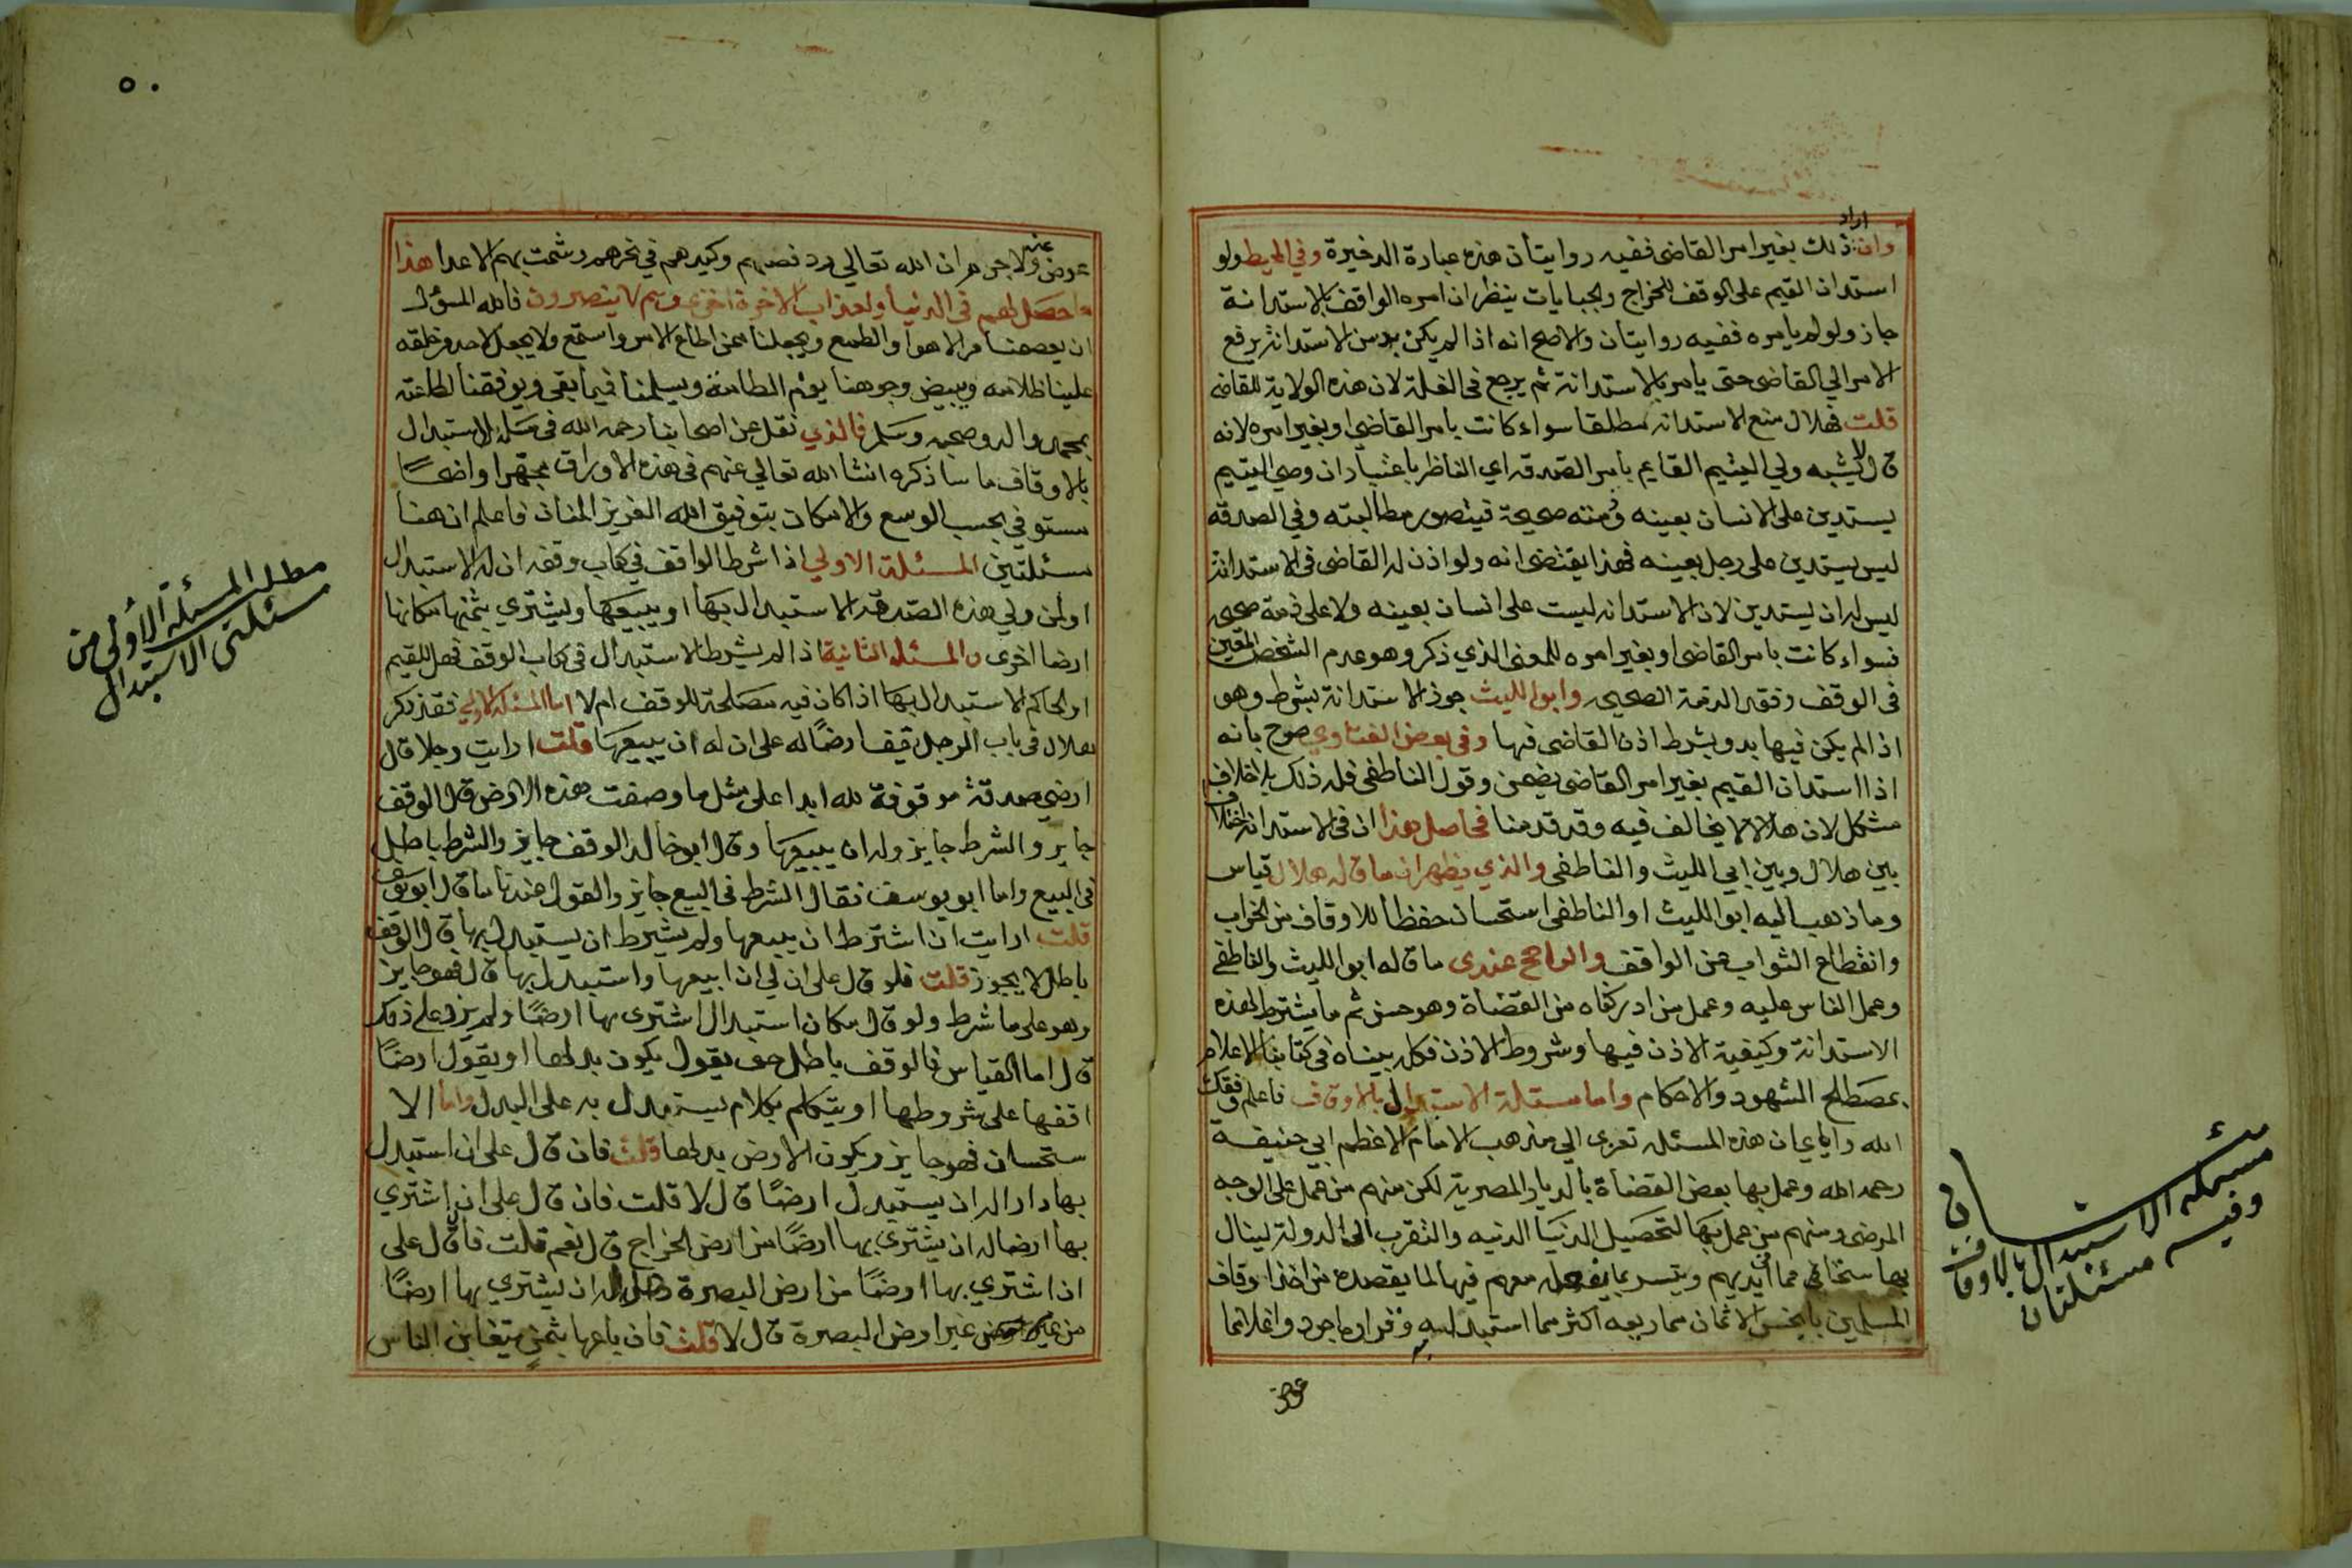 اراد
وان ذلك بغير امر القاضى ففيه روايتان هذه عبارة الذخيرة وفي المحيط ولو
استدان القيم على الوقف للخراج والجبايات ينظر ان امره الواقف بالاستدانة
جاز ولو لم يامره ففيه روايتان والاصح انه اذا لم يكن بد من الاستدانة يرفع
الامر الي القاضى حتى يامر بالاستدانة ثم يرجع فى الغلة لان هذه الولاية للقاضى
قلت فهلال منع الاستدانه مطلقا سواء كانت بامر القاضى او بغير امره لانه
قال لا يشبه ولي اليتيم القايم بامر الصدقة اي الناظر باعتبار ان وصي اليتيم
يستدين على الانسان بعينه وذمته صحيحة فيتصور مطالبته وفي الصدقة
ليس يستدين على رجل بعينه فهذا يقتضى انه ولو اذن له القاضى فى الاستدانة
ليس له ان يستدين لان الاستدانه ليست على انسان بعينه ولا على ذمة صحيحه
فسواء كانت بامر القاضى او بغير امره للمعنى الذي ذكر وهو عدم الشخص المعين
فى الوقف وفقد الذمة الصحيحه وابو الليث جوز الاستدانة بشرط وهو
اذا لم يكن فيها بد ويشرط اذن القاضى فيها وفى بعض الفتاوي صرح بانه
اذا استدان القيم بغير امر القاضى يضمن وقول الناطفى فله ذلك بلا خلاف
مشكل لان هلالا لا يخالف فيه وقد قدمنا فحاصل هذا ان فى الاستدانة اختلاف
بين هلال وبين ابي الليث والناطفى والذي يظهر ان ما قاله هلال قياس
وما ذهب اليه ابو الليث والناطفى استحسان حفظا للاوقاف من الخراب
وانقطاع الثواب عن الواقف والراجح عندى ما قاله ابو الليث والناطفى
وعمل الناس عليه وعمل من ادركناه من القضاة وهو حسن ثم ما يشترط لهذه
الاستدانة وكيفية الاذن فيها وشروط الاذن فكله بيناه فى كتابنا الاعلام
بمصطلح الشهود والاحكام واما مسئلة الاستبدال بالاوقاف فاعلم وفقك
الله واياي ان هذه المسئله تعزى الي مذهب الامام الاعظم ابي حنيفة
رحمه الله وعمل بها بعض القضاة بالديار المصرية لكن منهم من عمل على الوجه
المرضى ومنهم من عمل بها لتحصيل الدنيا الدنيه والتقرب الى الدولة لينال
بها مما فى ايديهم معهم فيها لما يقصده من اخذ اوقاف
المسلمين بابخس الاثمان مما ريعه اكثر مما استبدل به وقراره اجود واغلا ثما
عوض
مسئلة الاستبدال بالاوقاف
وفيه مسئلتان
٥٠
عوض عنه ولا جرم ان الله تعالي رد قصدهم وكيدهم في نحرهم وشمت بهم الاعدا هذا
ما حصل لهم فى الدنيا ولعذاب الاخرة اخزى وهم لا ينصرون فالله المسؤل
ان يعصمنا من الاهوا والطمع ويجعلنا ممن اطاع الامر واستمع ولا يجعل لاحد من خلقه
علينا ظلامه ويبيض وجوهنا يوم الطامة ويسلمنا فيما بقى ويوفقنا لطاعته
بمحمد واله وصحبه وسلم فالذي نقل عن اصحابنا رحمه الله فى مسئلة الاستبدال
بالاوقاف ما ساذكره انشا الله تعالي عنهم فى هذه الاوراق واضحًا
مستوفي بحسب الوسع والامكان بتوفيق الله العزيز المنان فاعلم ان هنا
مسئلتين المسئلة الاولي اذا شرط الواقف في كتاب وقفه ان له الاستبدال
او لمن ولي هذه الصدقة الاستبدال بها او يبيعها وليشتري بثمنها مكانها
ارضا اخرى والمسئله الثانية اذا لم يشرط الاستبدال فى كتاب الوقف فهل للقيم
او الحاكم الاستبدال بها اذا كان فيه مصلحة للوقف ام لا اما المسئلة الاولي فقد ذكر
هلال فى باب الرجل يقف ارضًا له على ان له ان يبيعها قلت ارايت رجلا قال
ارضي صدقة موقوفة لله ابدا على مثل ما وصفت هذه الارض قال الوقف
جايز والشرط جايز وله ان يبيعها وقال ابو خالد الوقف جايز والشرط باطل
فى البيع واما ابو يوسف فقال الشرط فى البيع جايز والقول عندنا ما قال ابو يوسف
قلت ارايت ان اشترط ان يبيعها ولم يشرط ان يستبدل بها قال الوقف
باطل لا يجوز قلت فلو قال على ان لي ان ابيعها واستبدل بها قال فهو جايز
وهو على ما شرط ولو قال مكان استبدال اشترى بها ارضًا ولم يزد على ذلك
قال اما القياس فالوقف باطل حتى يقول يكون بدلها او يقول ارضًا
اقفها على شروطها او يتكلم بكلام يستبدل به على البدل واما الا
ستحسان فهو جايز ويكون الارض بدلها قلت فان قال على ان استبدل
بها دارا له ان يستبدل ارضًا قال لا قلت فان قال على ان اشتري
بها ارضا له ان يشتري بها ارضًا من ارض الخراج قال نعم قلت فان قال على
ان اشتري بها ارضًا من ارض البصرة هل له ان يشتري بها ارضًا
من غير ارض البصرة قال لا قلت فان باعها بثمن يتغابن الناس
مطلب المسئلة الأولى من
مسئلتى الاستبدال